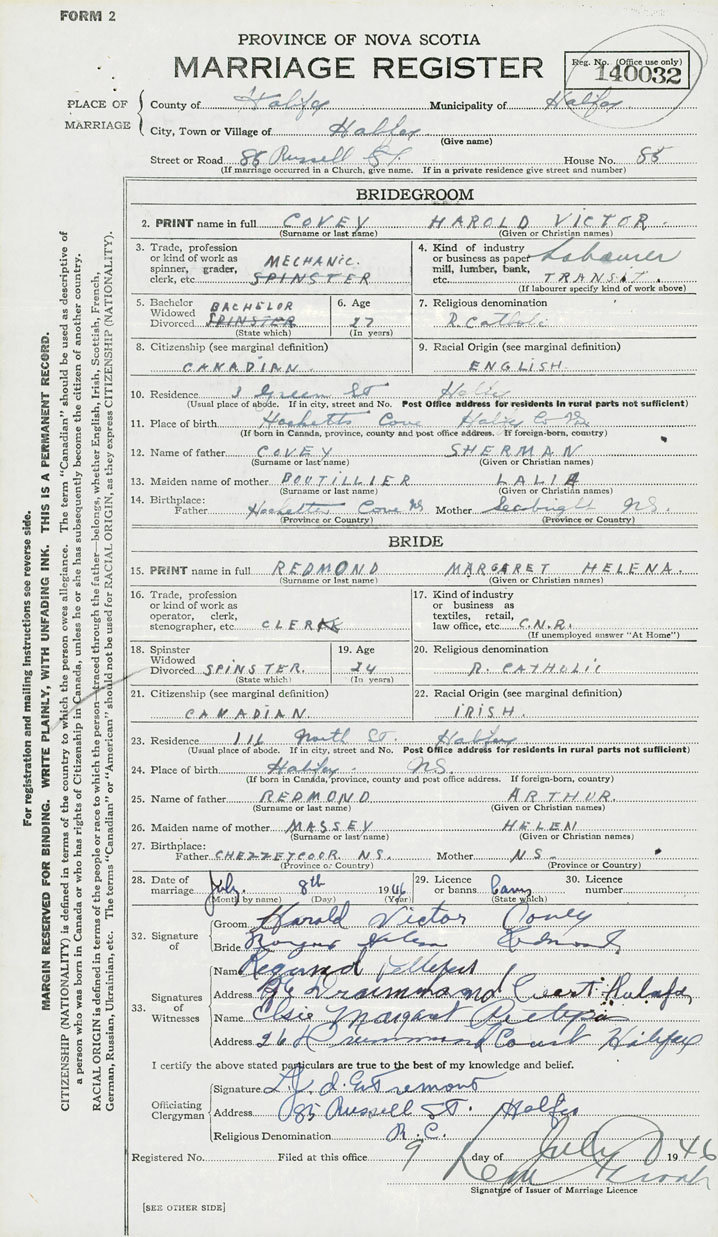 FORM 2
PROVINCE OF NOVA SCOTIA
MARRIAGE REGISTER
Reg. No. (Office use only)
140032
PLACE OF MARRIAGE
County of Halifax Municipality of Halifax
City, Town or Village of Halifax
(Give name)
Street or Road 85 Russell St. House No. 85
(If marriage occurred in a Church, give name. If in a private residence give street and number)
BRIDEGROOM
2. PRINT name in full COVEY HAROLD VICTOR.
(Surname or last name) (Given or Christian names)
3. Trade, profession or kind of work as spinner, grader, clerk, etc. MECHANIC. SPINSTER
4. Kind of industry or business as paper mill, lumber, bank, etc. Labourer TRANSIT.
(If labourer specify kind of work above)
5. Bachelor Widowed Divorced BACHELOR SPINSTER
(State which)
6. Age 27
(In years)
7. Religious denomination R. Catholic
8. Citizenship (see marginal definition) CANADIAN.
9. Racial Origin (see marginal definition) ENGLISH.
10. Residence 3 Green St Halifax
(Usual place of abode. If in city, street and No. Post Office address for residents in rural parts not sufficient)
11. Place of birth Hacketts Cove Halifax Co NS
(If born in Canada, province, county and post office address. If foreign-born, country)
12. Name of father COVEY SHERMAN
(Surname or last name) (Given or Christian names)
13. Maiden name of mother BOUTILLIER LALIA
(Surname or last name) (Given or Christian names)
14. Birthplace: Father Hacketts Cove NS Mother Seabright NS.
(Province or Country) (Province or Country)
BRIDE
15. PRINT name in full REDMOND MARGARET HELENA.
(Surname or last name) (Given or Christian names)
16. Trade, profession or kind of work as operator, clerk, stenographer, etc. CLERK
17. Kind of industry or business as textiles, retail, law office, etc. C.N.R.
(If unemployed answer "At Home")
18. Spinster Widowed Divorced SPINSTER.
(State which)
19. Age 24
(In years)
20. Religious denomination R. CATHOLIC
21. Citizenship (see marginal definition) CANADIAN
22. Racial Origin (see marginal definition) IRISH.
23. Residence 116 North St. Halifax
(Usual place of abode. If in city, street and No. Post Office address for residents in rural parts not sufficient)
24. Place of birth Halifax NS.
(If born in Canada, province, county and post office address. If foreign-born, country)
25. Name of father REDMOND ARTHUR.
(Surname or last name) (Given or Christian names)
26. Maiden name of mother MASSEY HELEN
(Surname or last name) (Given or Christian names)
27. Birthplace: Father CHEZZETCOOK. N.S. Mother N.S.
(Province or Country) (Province or Country)
28. Date of marriage July 8th 1946
(Month by name) (Day) (Year)
29. Licence or banns Banns
(State which)
30. Licence number
32. Signature of
Groom Harold Victor Covey
Bride Helena Redmond
33. Signatures of Witnesses
Name
Address 26 Drummond Court Halifax
Name Elsie Margaret
Address 26 Drummond Court Halifax
I certify the above stated particulars are true to the best of my knowledge and belief.
Officiating Clergyman
Signature d'Entremont
Address 85 Russell St. Halifax
Religious Denomination R.C.
Registered No. Filed at this office 9 day of July 1946
Signature of Issuer of Marriage Licence
[SEE OTHER SIDE]
For registration and mailing instructions see reverse side.
MARGIN RESERVED FOR BINDING. WRITE PLAINLY, WITH UNFADING INK. THIS IS A PERMANENT RECORD.
CITIZENSHIP (NATIONALITY) is defined in terms of the country to which the person owes allegiance. The term "Canadian" should be used as descriptive of
a person who was born in Canada or who has rights of Citizenship in Canada, unless he or she has subsequently become the citizen of another country.
RACIAL ORIGIN is defined in terms of the people or race to which the person—traced through the father—belongs, whether English, Irish, Scottish, French,
German, Russian, Ukrainian, etc. The terms "Canadian" or "American" should not be used for RACIAL ORIGIN, as they express CITIZENSHIP (NATIONALITY).